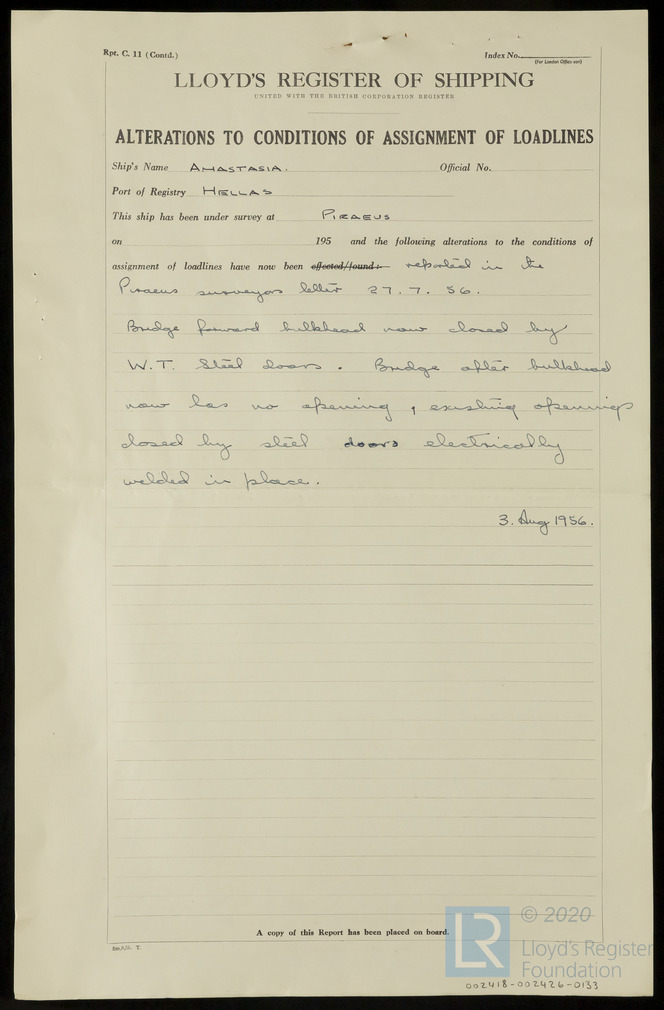 Rpt. C. 11 (Contd.)
Index No.
(For London Office use)
LLOYD'S REGISTER OF SHIPPING
UNITED WITH THE BRITISH CORPORATION REGISTER
ALTERATIONS TO CONDITIONS OF ASSIGNMENT OF LOADLINES
Ship's Name ANASTASIA. Official No.
Port of Registry HELLAS
This ship has been under survey at PIRAEUS
on 195 and the following alterations to the conditions of
assignment of loadlines have now been effected/found:- reported in the
Piraeus surveyors letter 27.7.56.
Bridge forward bulkhead now closed by
W.T. Steel doors. Bridge after bulkhead
now has no opening, existing openings
closed by steel doors electrically
welded in place.
3. Aug 1956.
A copy of this Report has been placed on board.
LR
© 2020
Lloyd's Register
Foundation
002418-002426-0133